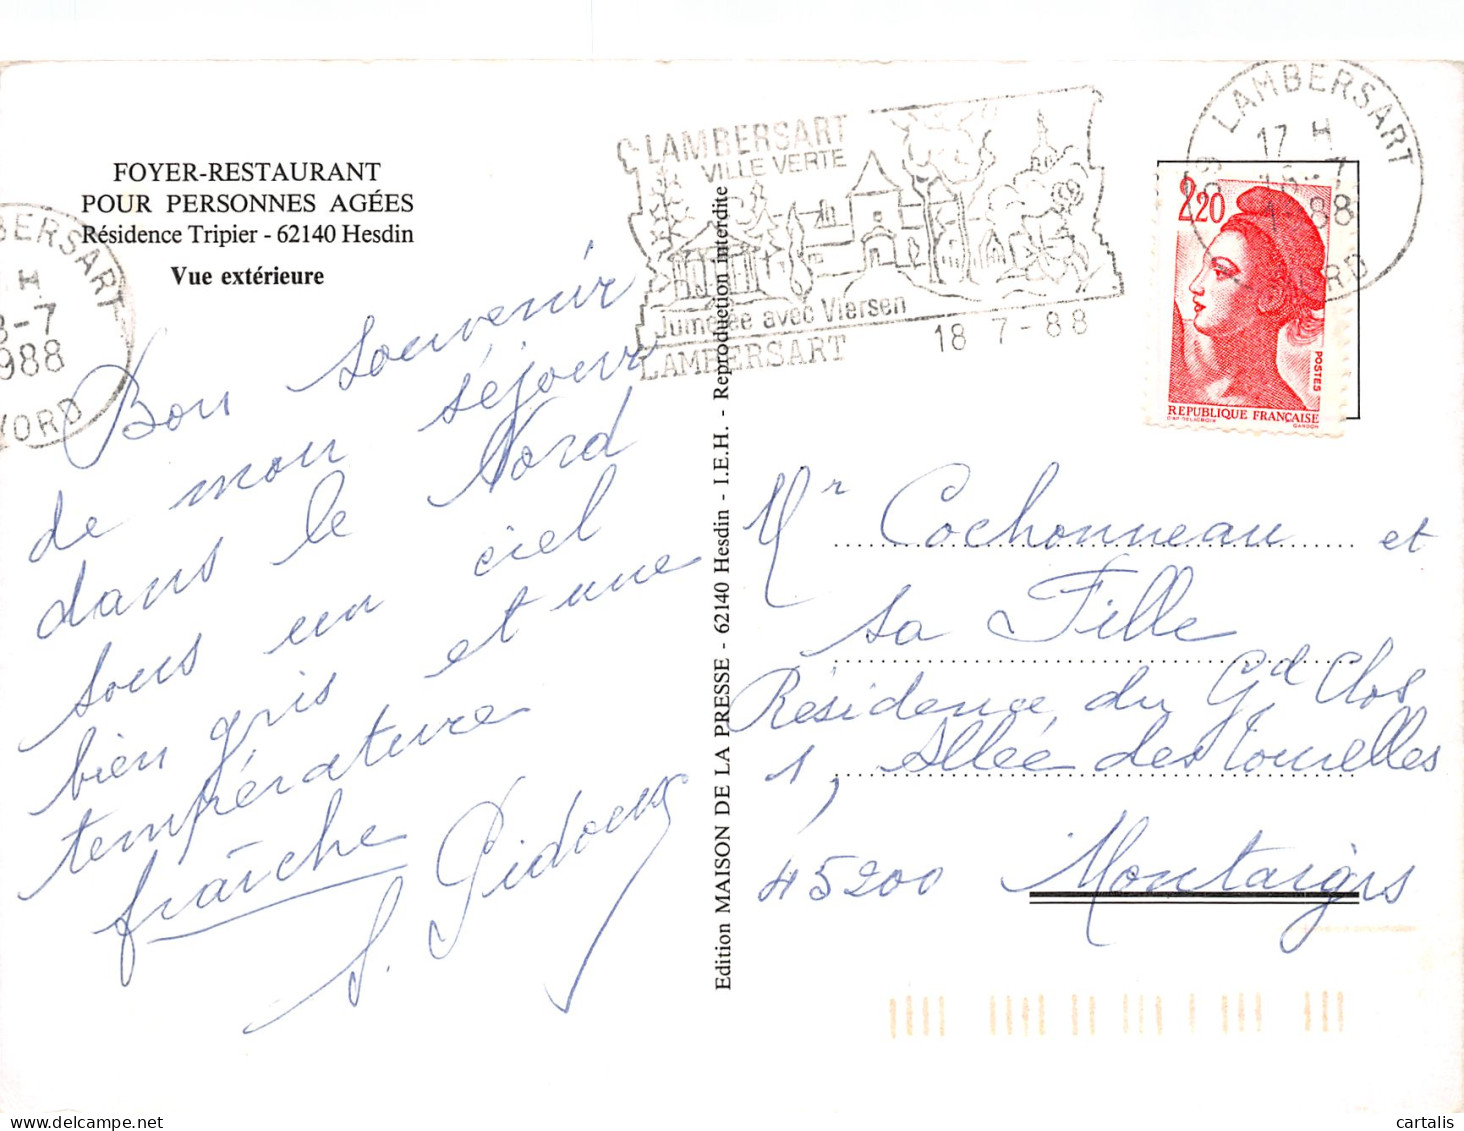 FOYER-RESTAURANT
POUR PERSONNES AGÉES
Résidence Tripier - 62140 Hesdin
Vue extérieure
Bon souvenir
de mon séjour
dans le Nord
sous un ciel
bien gris et une
température
fraîche
Edition MAISON DE LA PRESSE - 62140 Hesdin - I.E.H. - Reproduction interdite
LAMBERSART
VILLE VERTE
Jumelée avec Viersen
LAMBERSART
18 7-88
LAMBERSART
17 H
18-7
1988
NORD
2,20
POSTES
REPUBLIQUE FRANÇAISE
D'AP. DELACROIX GANDON
Mr Cochonneau et
sa Fille
Résidence du Gd Clos
1, Allée des Tourelles
45200 Montargis
BERSART
H
8-7
988
NORD
delcampe.net
cartalis